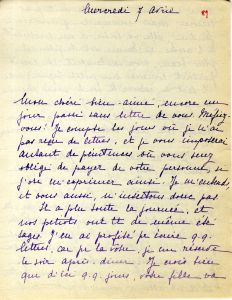 Mercredi 7 Avril
Mon chéri bien-aimé, encore un
jour passé sans lettre de vous. Méfiez
vous. Je compte les jours où je n'ai
pas reçu de lettres, et je vous imposerai
autant de pénitences où vous serez
obligé de payer de votre personne, si
j'ose m'exprimer ainsi. Je m'entends,
et vous aussi, n'insistons donc pas.
Il a plu toute la journée, et
nos petiots ont été de même été
sages. J'en ai profité pr écrire q.q.
lettres, car pr la vôtre, je me réserve
le soir après-dîner. Je crois bien
que d'ici q.q. jours, votre fille va